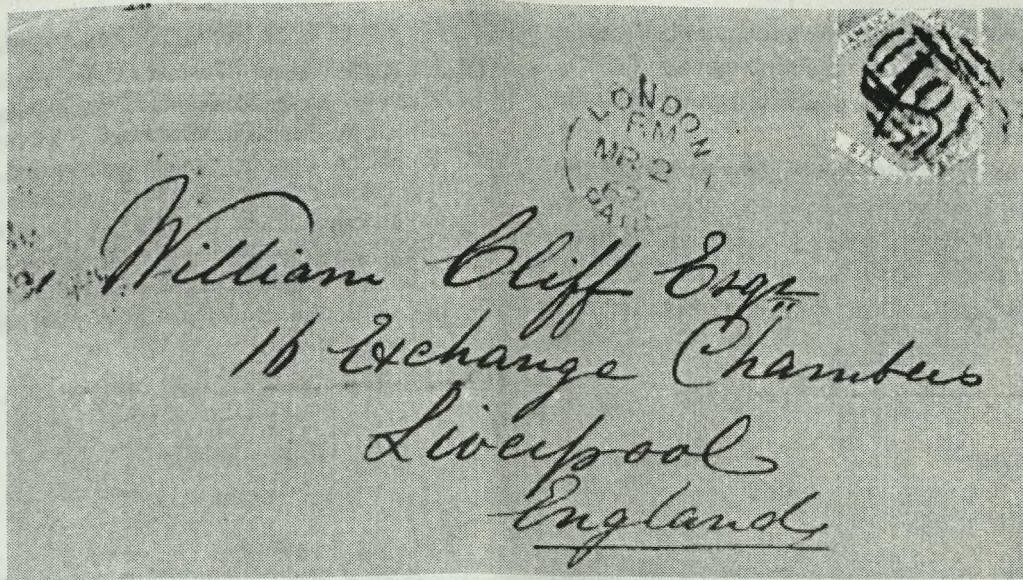 LONDON
MR 2
PAID
William Cliff Esqr
16 Exchange Chambers
Liverpool
England